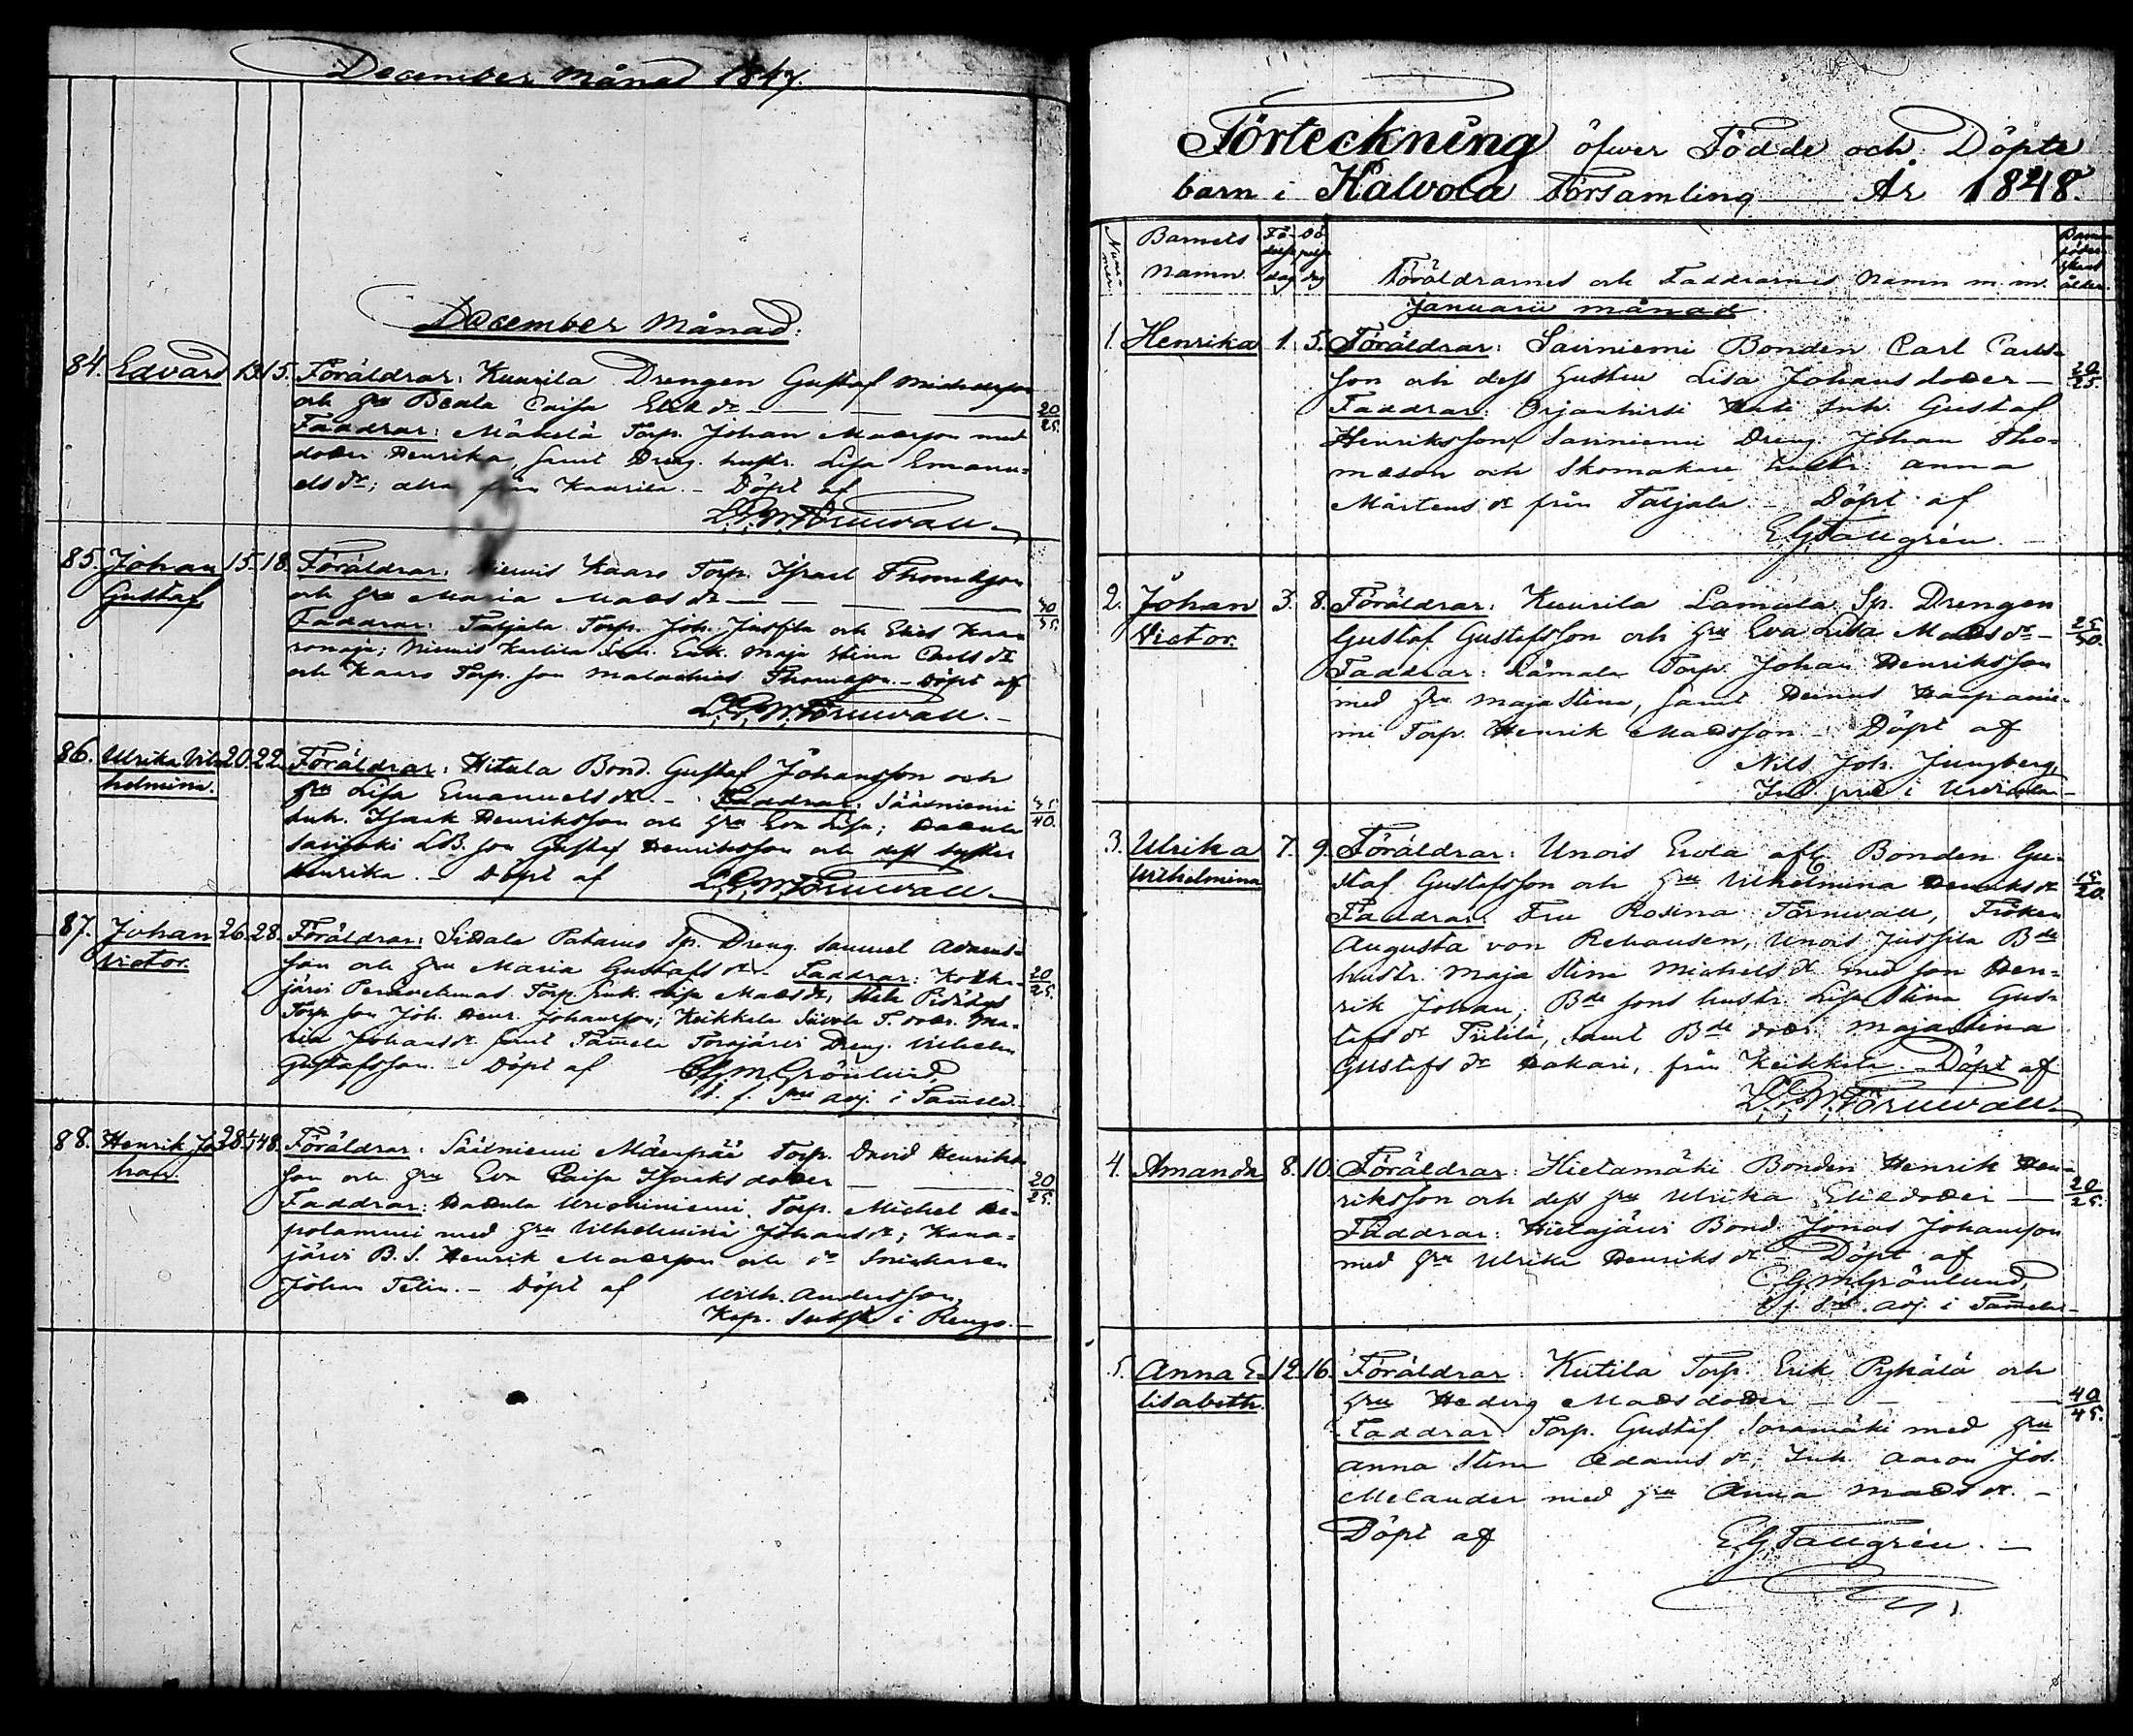 December Månad 1847.
December Månad:
84. Edvard 13. 15. Föräldrar: Kuurila Drengen Gustaf Michelsson
och hu Beata Caisa
20/25.
Faddrar: Mäkelä Torp. Johan Matsson med
dotter Henrika, samt Dreng. hustr. Lisa Emanu-
els dr; alla från Kuurila. – Döpt af
L.G.W. Törnwall.
85. Johan 15. 18. Föräldrar: Niemis Kaaro Torp. Israel Thomasson
Gustaf och hu Maria Mats dr
Faddrar: Taljala Torp. Joh. Jussila och
Niemis Enk. Maja Stina Carls dr
och Kaaro Torp. son Malachias Thomasson. – Döpt af
L.G.W. Törnwall. –
86. Ulrika Vil- 20. 22. Föräldrar: Hitula Bond. Gustaf Johansson och
helmina. hu Lisa Emanuels dr. – Faddrar: Sääxniemi
Inh. Isaak Henriksson och hu Eva Lisa;
LB. son Gustaf Henriksson och dess syster
Henrika. – Döpt af L.G.W. Törnwall.
87. Johan 26. 28. Föräldrar: Sp. Dreng. Samuel
Victor. son och hu Maria Gustafs dr. Faddrar:
20/25.
järvi Torp. Enk. Lisa Mats dr,
Torp. son Joh. Henr. Johansson; Keikkala T. dotter. Ma-
ria Johans dr samt Tamela Torajärvi Dreng. Vilhelm
Gustafsson. – Döpt af C.G.M. Grönlund,
adj. i Tamela.
88. Henrik Jo- 28. 1/1 48. Föräldrar: Sääxniemi Mäenpää Torp. David Henriks-
han. son och hu Eva Caisa Isaks dotter
20/25.
Faddrar: Uschiniemi Torp. Michel
med hu Vilhelmina Johans dr; Kana-
järvi B. S. Henrik Matsson och Snickaren
Johan Telin. – Döpt af Wilh. Andersson,
Kap. i Rengo. –
Förteckning öfwer Födde och Döpte
barn i Kalvola Församling År 1848.
Num-mer. Barnets Namn. Fö-delse dag Dö-pelse dag Föräldrarnes och Faddrarnes Namn m. m.
Januarii månad.
1. Henrika 1. 5. Föräldrar: Sauniemi Bonden Carl Carls-
son och dess hustru Lisa Johans dotter –
20/25.
Faddrar: Orjanhirsi Inh. Gustaf
Henriksson, Sauniemi Dreng. Johan Tho-
masson och Skomakare hustr. Anna
Mårtens dr från Taljala – Döpt af
E.G. Tallgrén. –
2. Johan 3. 8. Föräldrar: Kuurila Lamala Sp. Drengen
Victor. Gustaf Gustafsson och hu Eva Lisa Mats dr –
25/30.
Faddrar: Lamala Torp. Johan Henriksson
med hu Maja Stina, samt Niemis Haapanie-
mi Torp. Henrik Matsson – Döpt af
Nils Joh. Jungberg,
i Urdiala –
3. Ulrika 7. 9. Föräldrar: Unois Erola Bonden Gu-
Wilhelmina staf Gustafsson och hu Vilhelmina Henriks dr
15/20.
Faddrar: Fru Rosina Törnwall, Fröken
Augusta von Rehausen, Unois Jussila Bde
hustr. Maja Stina Michels dr med son Hen-
rik Johan, Bde sons hustr. Lisa Stina Gus-
tafs dr samt Bde dotter Maja Stina
Gustafs dr från Keikkala. – Döpt af
L.G.W. Törnwall.
4. Amanda 8. 10. Föräldrar: Hietamäki Bonden Henrik Hen-
riksson och dess hu Ulrika dotter
20/25.
Faddrar: Hietajärvi Bond. Jonas Johansson
med hu Ulrika Henriks dr – Döpt af
C.G.M. Grönlund,
adj. i Tamela –
5. Anna E- 12. 16. Föräldrar: Kutila Torp. Erik Pyhälä och
lisabeth. hu Hedvig Mats dotter
40/45.
Faddrar: Torp. Gustaf Soramäki med hu
Anna Stina Adams dr; Inh. Aaron Jos.
Melander med hu Anna Mats dr. –
Döpt af E.G. Tallgrén. –